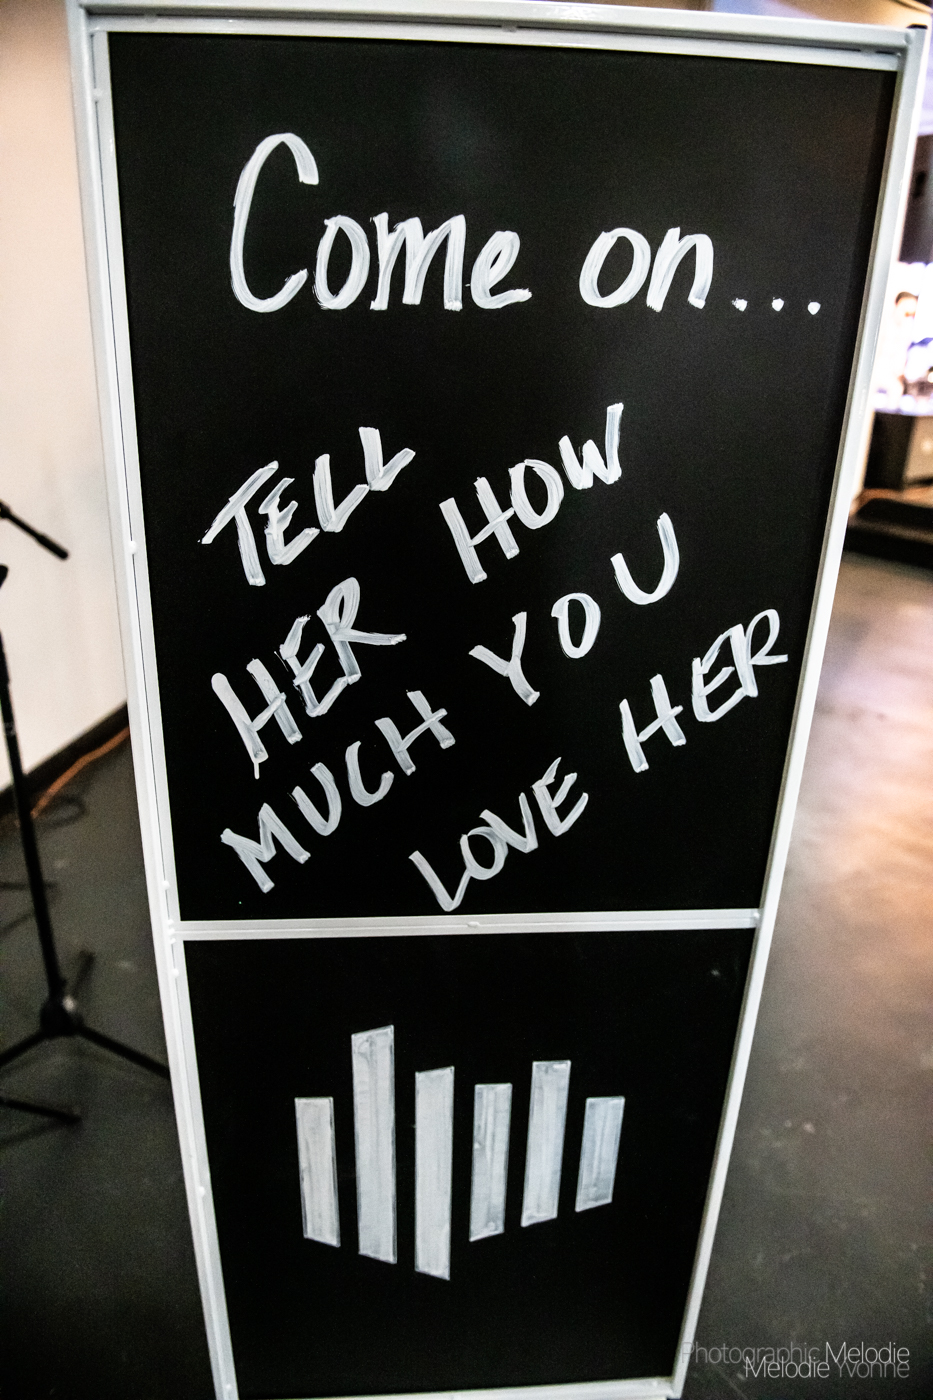 Come on...
TELL
HER HOW
MUCH YOU
LOVE HER
Photographic Melodie
Melodie Yvonne